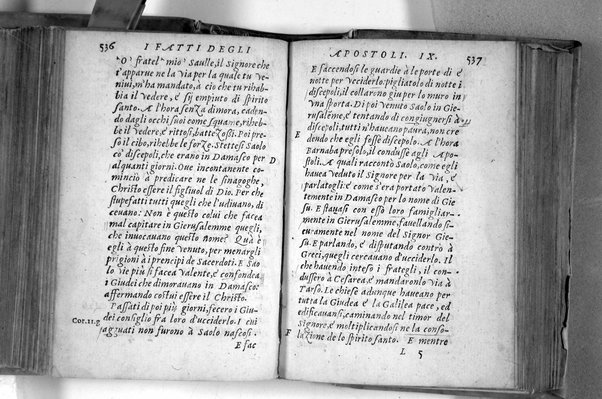 536 I FATTI DEGLI
'O' fratel' mio' Saulle, il Signore che
t'apparue ne la via per la quale tu ve-
niui, m'ha mandato, a ciò che tu rihab-
bia il vedere, e sij empiuto di spirito
santo. A l'hora senza dimora, caden-
do dagli occhi suoi come squame, rihel-
be il vedere, e rittosi, battezossi. Poi pre-
so il cibo, rihebbe le forze. Stettesi Saolo
co' discepoli, che erano in Damasco per
D
alquanti giorni. One incontanente co-
minciò a predicare ne le sinagoghe,
Christo essere il figliuol di Dio. Per che
stupefatti tutti quegli che l'udiuano, di-
ceuano: Non è questo colui che facea
mal capitare in Gierusalemme quegli,
che inuocauano questo nome? Quà è
egli à questo fine venuto, per menargli
prigioni à i prencipi de Sacerdoti. E Sao
lo vie più si facea valente, e confondea
i Giudei che dimorauano in Damasco:
affermando costui essere il Christo.
Passati di poi più giorni, fecero i Giu-
Cor. 11. g
dei consiglio fra loro d'vcciderlo. I cui
aguati non furono à Saolo nascosi.
E fac
APOSTOLI. IX. 537
E faccendosi le guardie à le porte di e
notte per vcciderlo: pigliatolo di notte i
discepoli, il collarono giu per lo muro in
vna sporta. Di poi venuto Saolo in Gie-
rusalemme, e tentando di congiugnersi à
discepoli, tutti n'haueano paura, non cre
E
dendo che egli fesse discepolo. A l'hora
Barnaba presolo, il condusse agli Apo-
stoli. A quali raccontò Saolo, come egli
hauea veduto il Signore per la via, e
parlatogli: e come s'era portato valen-
temente in Damasco per lo nome di Gie
su. E stauasi con esso loro famigliar-
mente in Gierusalemme, fauellando si-
curamente nel nome del Signor Gie-
su. E parlando, e disputando contrò à
Greci, quegli cercauano d'vcciderlo. Il
che hauendo inteso i frategli, il con-
dussero à Cesarea, e mandaronlo via à
Tarso. Le chiese adunque haueano per
tutta la Giudea e la Galilea pace, ed
edificauansi, caminando nel timor del
Signore, e moltiplicandosi ne la conso-
F
lazione de lo spirito santo. E mentre
L 5